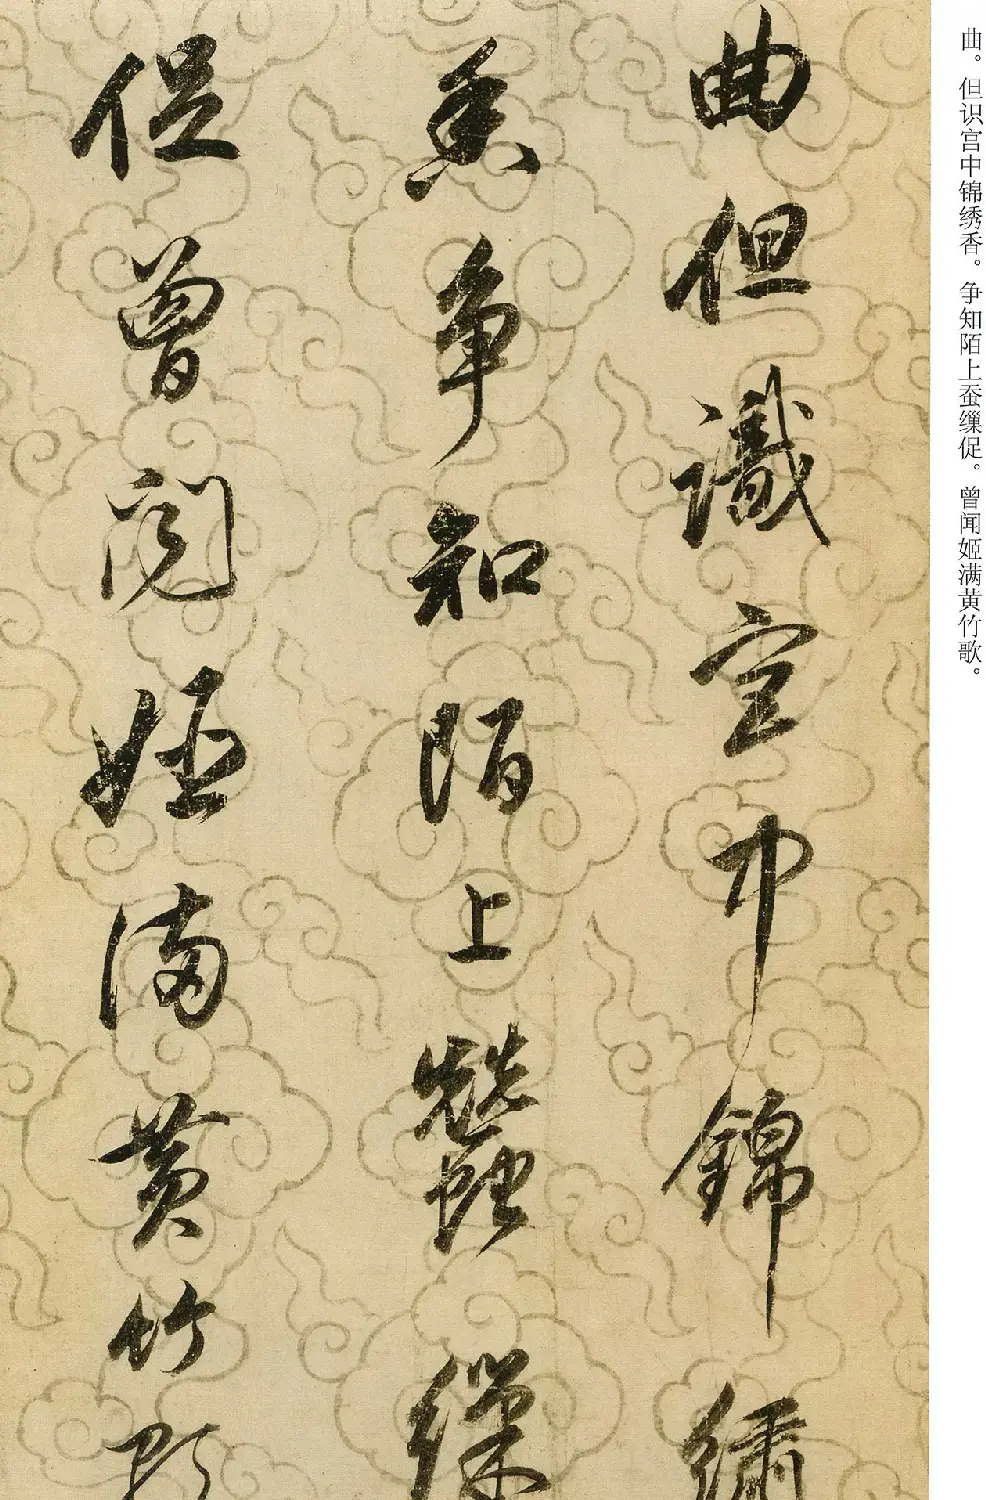 曲但識宮中錦繡
香争知陌上蠶繅
促曾闻姬满黄竹歌
曲。但识宫中锦绣香。争知陌上蚕缫促。曾闻姬满黄竹歌。